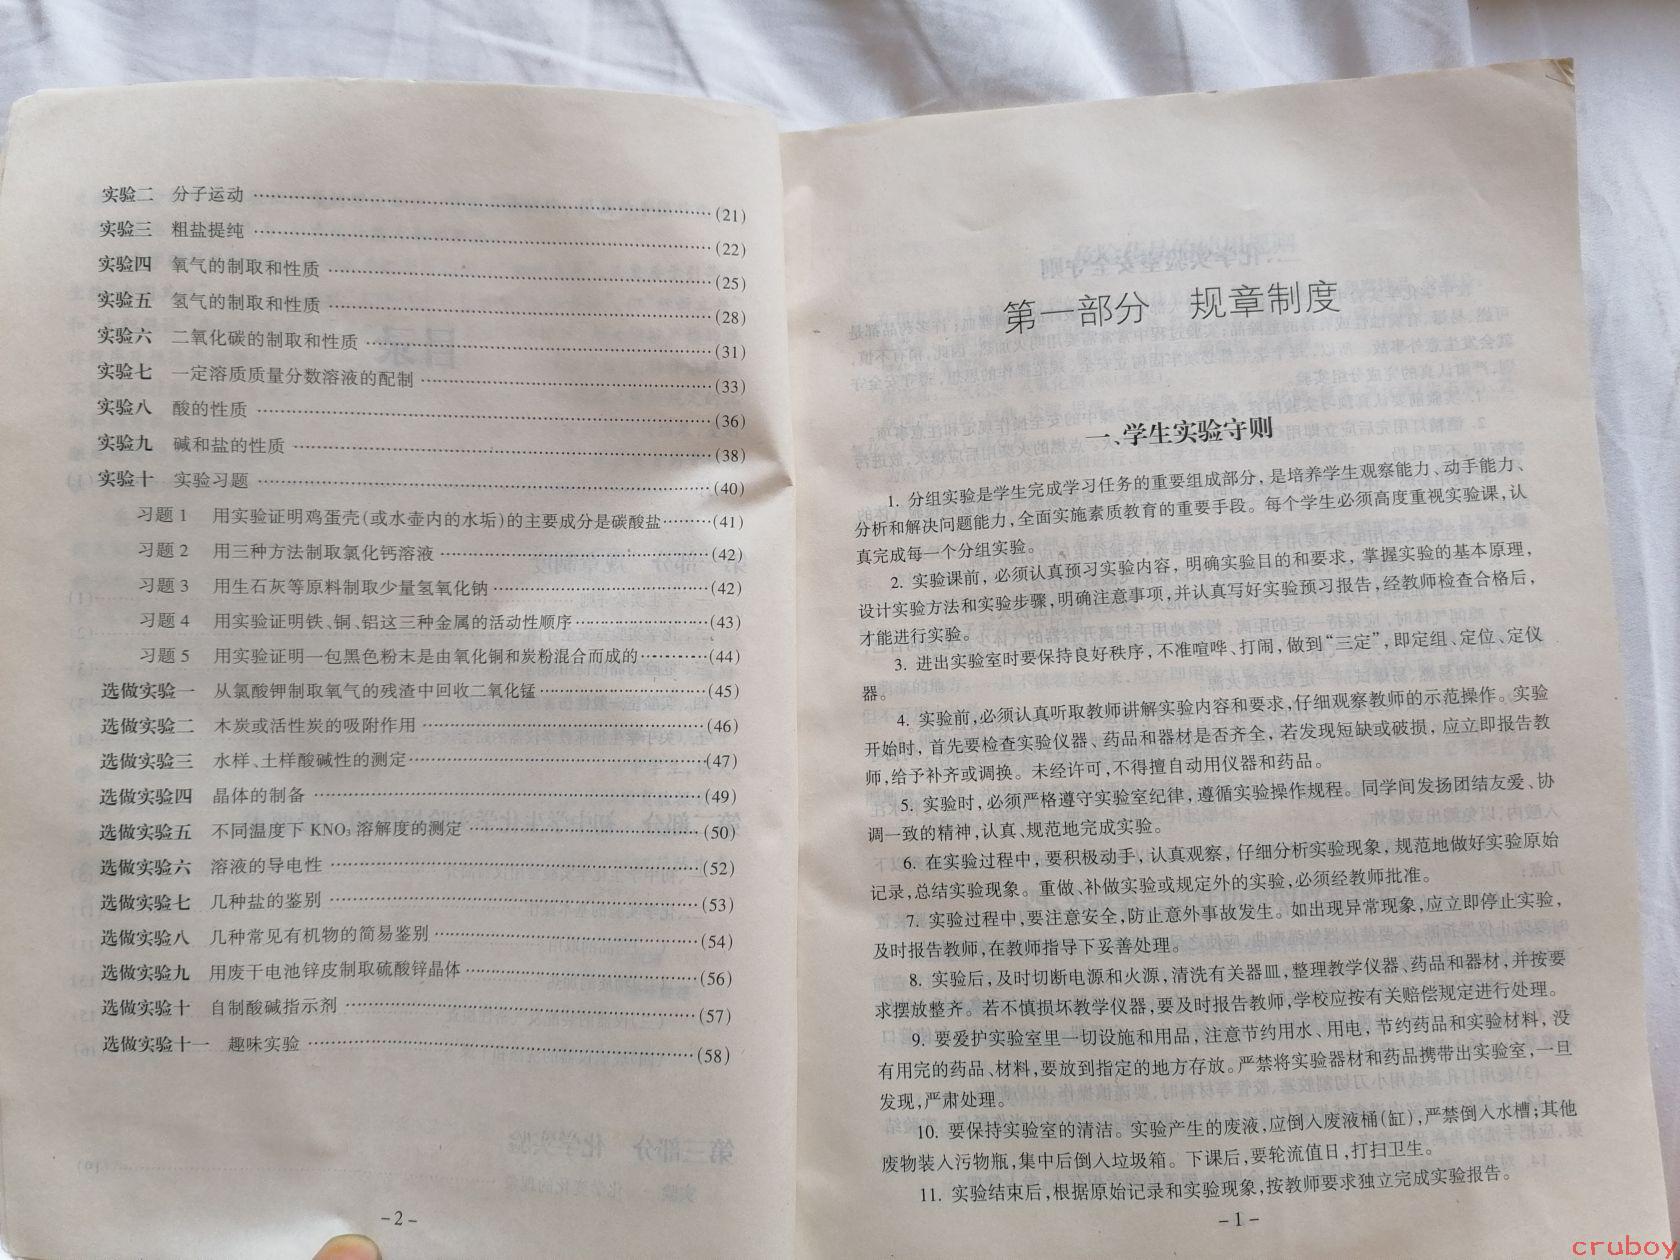 实验二 分子运动 ……………………………………(21)
实验三 粗盐提纯 ……………………………………(22)
实验四 氧气的制取和性质 ……………………………(25)
实验五 氢气的制取和性质 ……………………………(28)
实验六 二氧化碳的制取和性质 ………………………(31)
实验七 一定溶质质量分数溶液的配制 ………………(33)
实验八 酸的性质 ……………………………………(36)
实验九 碱和盐的性质 ………………………………(38)
实验十 实验习题 ……………………………………(40)
习题1 用实验证明鸡蛋壳(或水壶内的水垢)的主要成分是碳酸盐………(41)
习题2 用三种方法制取氯化钙溶液 ……………………(42)
习题3 用生石灰等原料制取少量氢氧化钠 ……………(42)
习题4 用实验证明铁、铜、铝这三种金属的活动性顺序……………(43)
习题5 用实验证明一包黑色粉末是由氧化铜和炭粉混合而成的…………(44)
选做实验一 从氯酸钾制取氧气的残渣中回收二氧化锰 ……………(45)
选做实验二 木炭或活性炭的吸附作用 ………………(46)
选做实验三 水样、土样酸碱性的测定…………………(47)
选做实验四 晶体的制备 ……………………………(49)
选做实验五 不同温度下 KNO₃ 溶解度的测定 …………(50)
选做实验六 溶液的导电性 …………………………(52)
选做实验七 几种盐的鉴别 …………………………(53)
选做实验八 几种常见有机物的简易鉴别 ……………(54)
选做实验九 用废干电池锌皮制取硫酸锌晶体 …………(56)
选做实验十 自制酸碱指示剂 …………………………(57)
选做实验十一 趣味实验 ……………………………(58)
-2-
第一部分 规章制度
一、学生实验守则
1. 分组实验是学生完成学习任务的重要组成部分,是培养学生观察能力、动手能力、
分析和解决问题能力,全面实施素质教育的重要手段。每个学生必须高度重视实验课,认
真完成每一个分组实验。
2. 实验课前,必须认真预习实验内容,明确实验目的和要求,掌握实验的基本原理,
设计实验方法和实验步骤,明确注意事项,并认真写好实验预习报告,经教师检查合格后,
才能进行实验。
3. 进出实验室时要保持良好秩序,不准喧哗、打闹,做到“三定”,即定组、定位、定仪
器。
4. 实验前,必须认真听取教师讲解实验内容和要求,仔细观察教师的示范操作。实验
开始时,首先要检查实验仪器、药品和器材是否齐全,若发现短缺或破损,应立即报告教
师,给予补齐或调换。未经许可,不得擅自动用仪器和药品。
5. 实验时,必须严格遵守实验室纪律,遵循实验操作规程。同学间发扬团结友爱、协
调一致的精神,认真、规范地完成实验。
6. 在实验过程中,要积极动手,认真观察,仔细分析实验现象,规范地做好实验原始
记录,总结实验现象。重做、补做实验或规定外的实验,必须经教师批准。
7. 实验过程中,要注意安全,防止意外事故发生。如出现异常现象,应立即停止实验,
及时报告教师,在教师指导下妥善处理。
8. 实验后,及时切断电源和火源,清洗有关器皿,整理教学仪器、药品和器材,并按要
求摆放整齐。若不慎损坏教学仪器,要及时报告教师,学校应按有关赔偿规定进行处理。
9. 要爱护实验室里一切设施和用品,注意节约用水、用电,节约药品和实验材料,没
有用完的药品、材料,要放到指定的地方存放。严禁将实验器材和药品携带出实验室,一旦
发现,严肃处理。
10. 要保持实验室的清洁。实验产生的废液,应倒入废液桶(缸),严禁倒入水槽;其他
废物装入污物瓶,集中后倒入垃圾箱。下课后,要轮流值日,打扫卫生。
11. 实验结束后,根据原始记录和实验现象,按教师要求独立完成实验报告。
-1-
cruboy